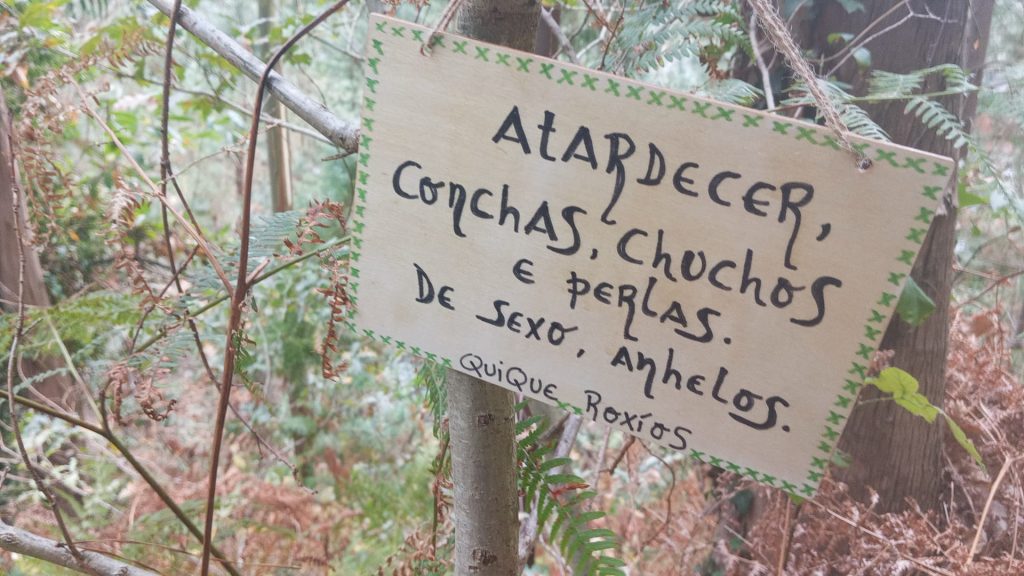 ATARDECER,
CONCHAS, CHUCHOS
E PERLAS.
DE SEXO, ANHELOS.
QUIQUE ROXÍOS